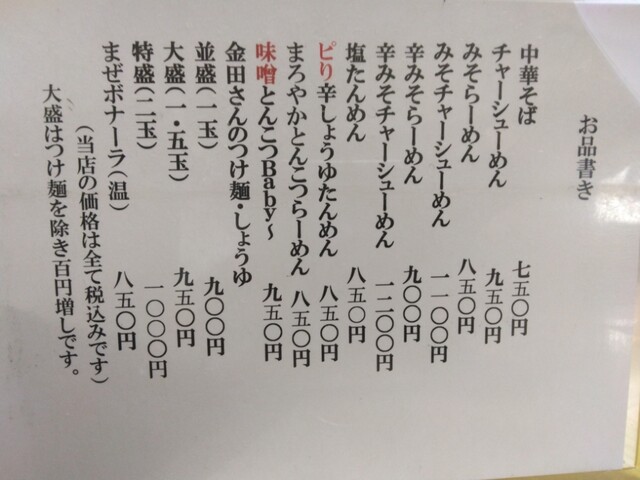 お品書き
中華そば 七五〇円
チャーシューめん 九五〇円
みそらーめん 八五〇円
みそチャーシューめん 一一〇〇円
辛みそらーめん 九〇〇円
辛みそチャーシューめん 一二〇〇円
塩たんめん 八五〇円
ピり辛しょうゆたんめん 八五〇円
まろやかとんこつらーめん 八五〇円
味噌とんこつBaby〜 九五〇円
金田さんのつけ麺・しょうゆ
並盛（一玉） 九〇〇円
大盛（一・五玉） 九五〇円
特盛（二玉） 一〇〇〇円
まぜボナーラ（温） 八五〇円
（当店の価格は全て税込みです）
大盛はつけ麺を除き百円増しです。